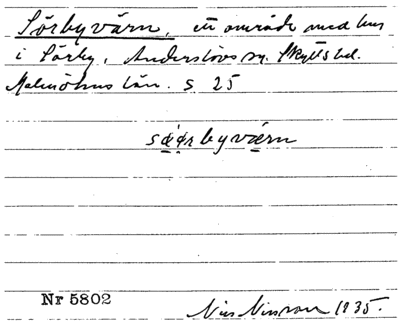 Sörbyvärn, ett område med hus
i Sörby, Anderslövs sn. Skytts hd.
Malmöhus län. s. 25
Nr 5802
Nils Nilsson 1935.